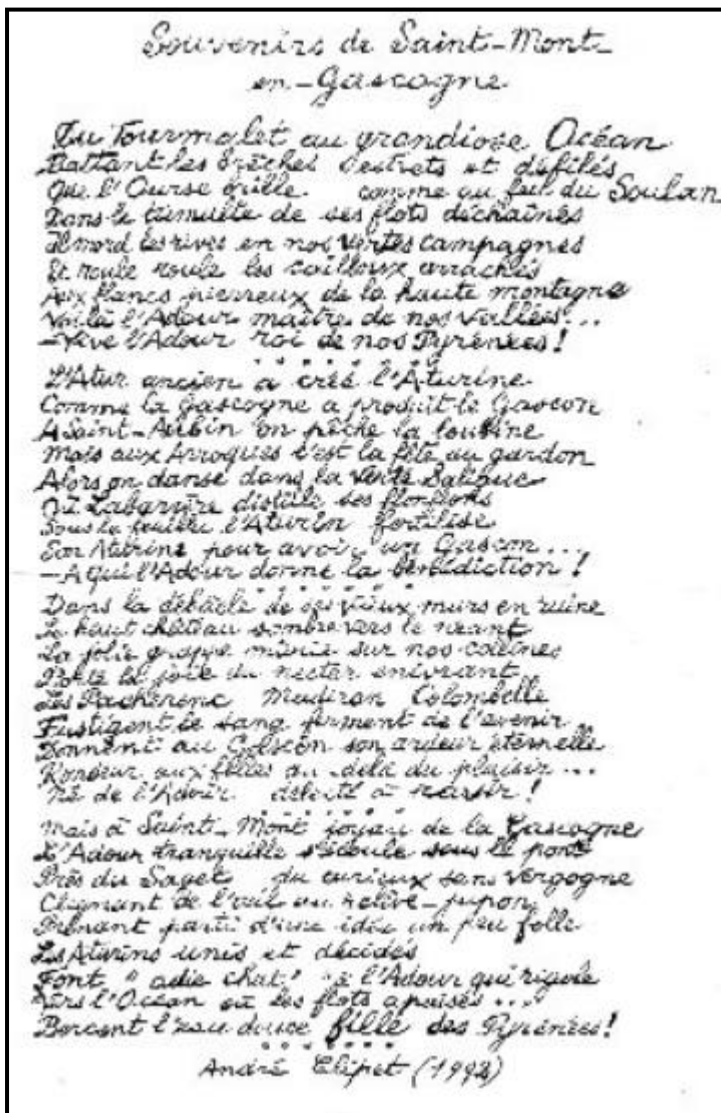 Souvenirs de Saint-Mont
en-Gascogne
Du Tourmalet au grandiose Océan
Battant les brêches et défilés
Que l'Ourse comme au feu du Soulan
Dans le tumulte de ses flots déchaînés
Il mord les rives en nos vertes campagnes
Et roule roule les cailloux arrachés
Aux flancs pierreux de la haute montagne
Voilà l'Adour maître de nos vallées...
-Vive l'Adour roi de nos Pyrénées!
L'Atur ancien a créé l'Aturine
Comme la Gascogne a produit le Gascon
A Saint-Aubin on pêche la loubine
Mais aux Arroques c'est la fête au gardon
Alors on danse dans la verte Saligue
Où distille ses flonflons
Sous la l'Aturin fertilise
Son Aturine pour avoir un Gascon...
-A qui l'Adour donne la bénédiction!
Dans la débâcle de ses vieux murs en ruine
Le haut château sombre vers le néant
La jolie grappe mûrie sur nos collines
Porte la joie du nectar enivrant
Les Pacherenc Madiran Colombelle
Fustigent le sang ferment de l'avenir
Donnent au Gascon son ardeur éternelle
aux filles au-delà du plaisir...
Né de l'Adour à !
Mais à Saint-Mont joyau de la Gascogne
L'Adour tranquille s'écoule sous le pont
Près du Saget du curieux sans vergogne
Clignant de l'œil au relève-jupon
Prenant parti d'une idée un peu folle
Les Aturins unis et décidés
Font "adie chat" à l'Adour qui rigole
Vers l'Océan où les flots apaisés...
Bercent l'eau douce fille des Pyrénées!
André Clipet (1992)